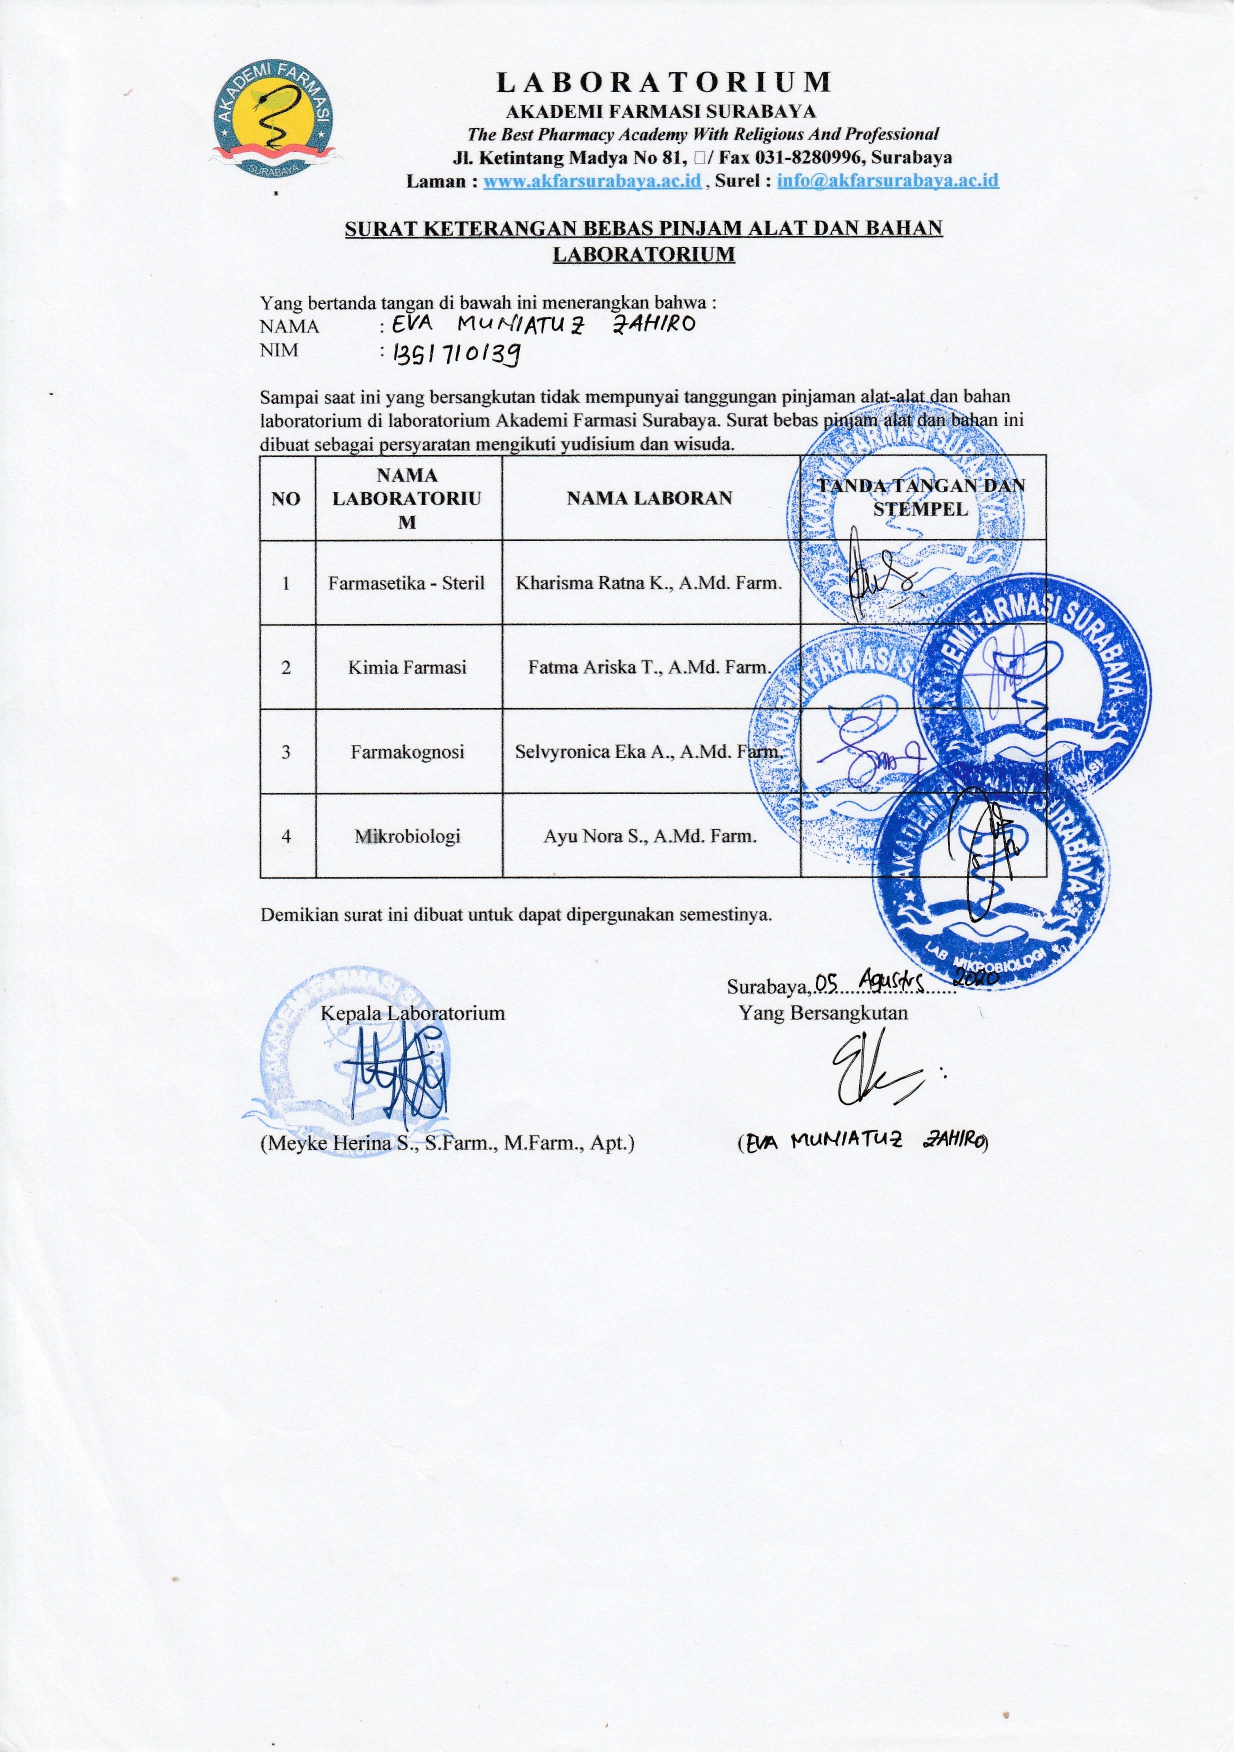 AKADEMI FARMASI
SURABAYA
LABORATORIUM
AKADEMI FARMASI SURABAYA
The Best Pharmacy Academy With Religious And Professional
Jl. Ketintang Madya No 81, □/ Fax 031-8280996, Surabaya
Laman : www.akfarsurabaya.ac.id , Surel : info@akfarsurabaya.ac.id
SURAT KETERANGAN BEBAS PINJAM ALAT DAN BAHAN
LABORATORIUM
Yang bertanda tangan di bawah ini menerangkan bahwa :
NAMA : EVA MUNIATUZ ZAHIRO
NIM : 1351710139
Sampai saat ini yang bersangkutan tidak mempunyai tanggungan pinjaman alat-alat dan bahan
laboratorium di laboratorium Akademi Farmasi Surabaya. Surat bebas pinjam alat dan bahan ini
dibuat sebagai persyaratan mengikuti yudisium dan wisuda.
NO NAMA LABORATORIUM NAMA LABORAN TANDA TANGAN DAN STEMPEL
1 Farmasetika - Steril Kharisma Ratna K., A.Md. Farm.
2 Kimia Farmasi Fatma Ariska T., A.Md. Farm.
3 Farmakognosi Selvyronica Eka A., A.Md. Farm.
4 Mikrobiologi Ayu Nora S., A.Md. Farm.
AKADEMI FARMASI SURABAYA
AKADEMI FARMASI SURABAYA
AKADEMI FARMASI
AKADEMI SURABAYA
LAB MIKROBIOLOGI
Demikian surat ini dibuat untuk dapat dipergunakan semestinya.
Surabaya, 05 Agustus 2020
Kepala Laboratorium Yang Bersangkutan
(Meyke Herina S., S.Farm., M.Farm., Apt.) (EVA MUNIATUZ ZAHIRO)